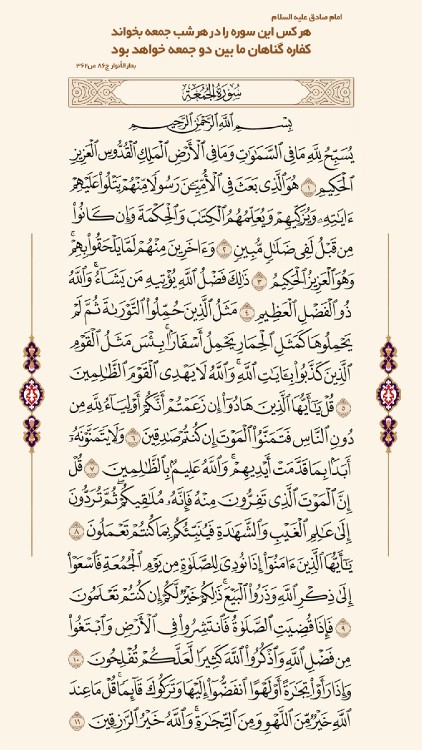 امام صادق علیه السلام
هر کس این سوره را در هر شب جمعه بخواند
کفاره گناهان ما بین دو جمعه خواهد بود
بحارالأنوار ج۸۶ ص۳۶۲
سُورَةُ الجُمُعَةِ
بِسْمِ اللَّهِ الرَّحْمَٰنِ الرَّحِيمِ
يُسَبِّحُ لِلَّهِ مَا فِي السَّمَٰوَٰتِ وَمَا فِي الْأَرْضِ الْمَلِكِ الْقُدُّوسِ الْعَزِيزِ
الْحَكِيمِ ١ هُوَ الَّذِي بَعَثَ فِي الْأُمِّيِّينَ رَسُولًا مِنْهُمْ يَتْلُوا عَلَيْهِمْ
ءَايَٰتِهِ وَيُزَكِّيهِمْ وَيُعَلِّمُهُمُ الْكِتَٰبَ وَالْحِكْمَةَ وَإِن كَانُوا
مِن قَبْلُ لَفِي ضَلَٰلٍ مُّبِينٍ ٢ وَءَاخَرِينَ مِنْهُمْ لَمَّا يَلْحَقُوا بِهِمْ
وَهُوَ الْعَزِيزُ الْحَكِيمُ ٣ ذَٰلِكَ فَضْلُ اللَّهِ يُؤْتِيهِ مَن يَشَاءُ وَاللَّهُ
ذُو الْفَضْلِ الْعَظِيمِ ٤ مَثَلُ الَّذِينَ حُمِّلُوا التَّوْرَىٰةَ ثُمَّ لَمْ
يَحْمِلُوهَا كَمَثَلِ الْحِمَارِ يَحْمِلُ أَسْفَارًا بِئْسَ مَثَلُ الْقَوْمِ
الَّذِينَ كَذَّبُوا بِـَٔايَٰتِ اللَّهِ وَاللَّهُ لَا يَهْدِي الْقَوْمَ الظَّٰلِمِينَ
٥ قُلْ يَٰأَيُّهَا الَّذِينَ هَادُوا إِن زَعَمْتُمْ أَنَّكُمْ أَوْلِيَاءُ لِلَّهِ مِن
دُونِ النَّاسِ فَتَمَنَّوُا الْمَوْتَ إِن كُنتُمْ صَٰدِقِينَ ٦ وَلَا يَتَمَنَّوْنَهُ
أَبَدًا بِمَا قَدَّمَتْ أَيْدِيهِمْ وَاللَّهُ عَلِيمٌ بِالظَّٰلِمِينَ ٧ قُلْ
إِنَّ الْمَوْتَ الَّذِي تَفِرُّونَ مِنْهُ فَإِنَّهُ مُلَٰقِيكُمْ ثُمَّ تُرَدُّونَ
إِلَىٰ عَٰلِمِ الْغَيْبِ وَالشَّهَٰدَةِ فَيُنَبِّئُكُم بِمَا كُنتُمْ تَعْمَلُونَ ٨
يَٰأَيُّهَا الَّذِينَ ءَامَنُوا إِذَا نُودِيَ لِلصَّلَوٰةِ مِن يَوْمِ الْجُمُعَةِ فَاسْعَوْا
إِلَىٰ ذِكْرِ اللَّهِ وَذَرُوا الْبَيْعَ ذَٰلِكُمْ خَيْرٌ لَّكُمْ إِن كُنتُمْ تَعْلَمُونَ
٩ فَإِذَا قُضِيَتِ الصَّلَوٰةُ فَانتَشِرُوا فِي الْأَرْضِ وَابْتَغُوا
مِن فَضْلِ اللَّهِ وَاذْكُرُوا اللَّهَ كَثِيرًا لَّعَلَّكُمْ تُفْلِحُونَ ١٠
وَإِذَا رَأَوْا تِجَٰرَةً أَوْ لَهْوًا انفَضُّوا إِلَيْهَا وَتَرَكُوكَ قَائِمًا قُلْ مَا عِندَ
اللَّهِ خَيْرٌ مِّنَ اللَّهْوِ وَمِنَ التِّجَٰرَةِ وَاللَّهُ خَيْرُ الرَّٰزِقِينَ ١١